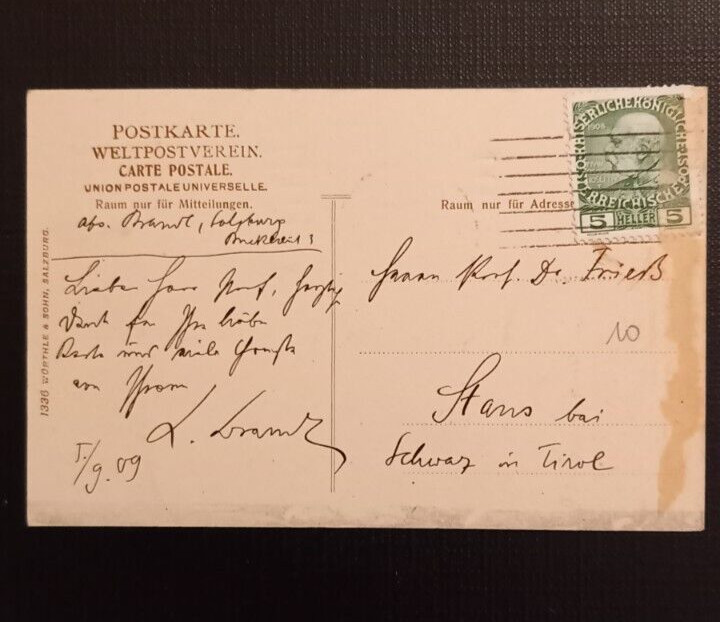 POSTKARTE.
WELTPOSTVEREIN.
CARTE POSTALE.
UNION POSTALE UNIVERSELLE.
Raum nur für Mitteilungen.
abs. Brandl, Salzburg
Liebe Herr Prof, herzlig
Dank für Ihre liebe
Karte und viele
von Ihrem
L. Brandl
5/9.09
1336 WÜRTHLE & SOHN, SALZBURG.
KAISERLICHEKÖNIGLICHE
ÖSTERREICHISCHE
1908
5 HELLER 5
Raum nur für Adresse
Herrn Prof. Dr. Frieß
10
Stans bei
Schwaz in Tirol